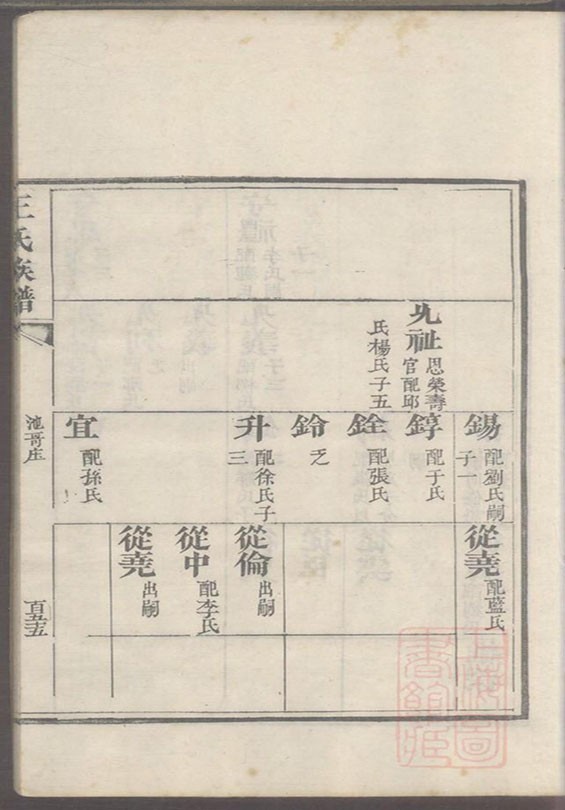 允祉
恩榮壽
官配邱
氏楊氏子五
錫
配劉氏嗣
子一
錞
配于氏
銓
配張氏
鈴
乏
升
配徐氏子
三
宜
配孫氏
從堯
配藍氏
從倫
出嗣
從中
配李氏
從堯
出嗣
王氏族譜
池哥庄
百五五
上海圖
書館藏